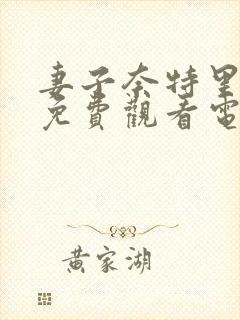 妻子奈特里
免費觀看電
黄家湖